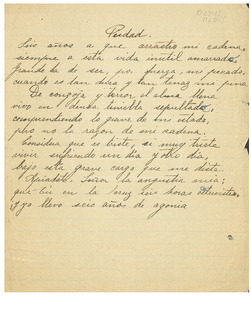 Piedad.
Seis años a que arrastro mi cadena,
siempre a esta vida inútil amarrado.
Grande ha de ser, por fuerza, mi pecado,
cuando es tan dura y tan tenaz mi pena
De congoja y terror el alma llena
vivo en dicha tiniebla sepultado,
comprendiendo lo grave de mi estado,
pero no la razón de mi cadena.
Considera que es triste, si muy triste
vivir sufriendo un día y otro día,
bajo esta grave carga que me diste.
Apiádate Señor la angustia mía;
que tú en la Cruz tres horas
y yo llevo seis años de agonía